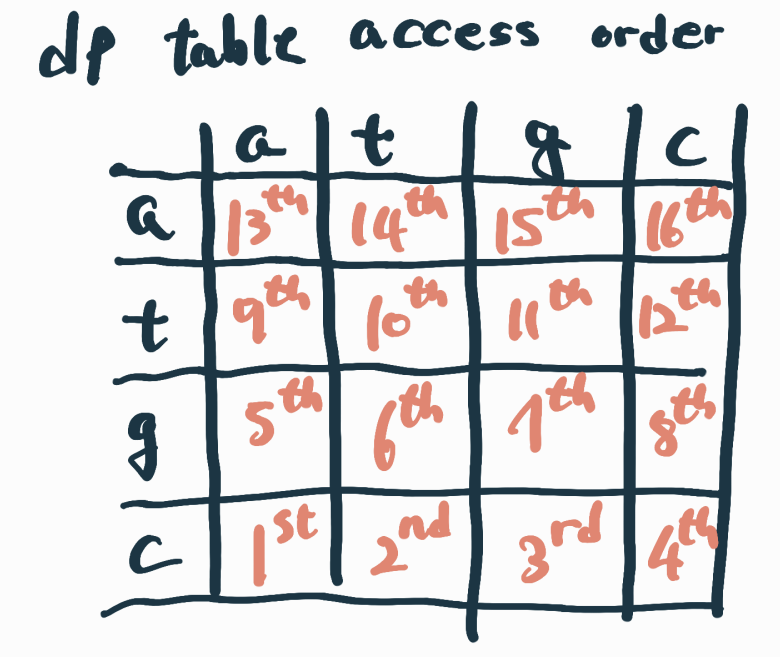 dp table access order
a t g c
a 13th 14th 15th 16th
t 9th 10th 11th 12th
g 5th 6th 7th 8th
c 1st 2nd 3rd 4th